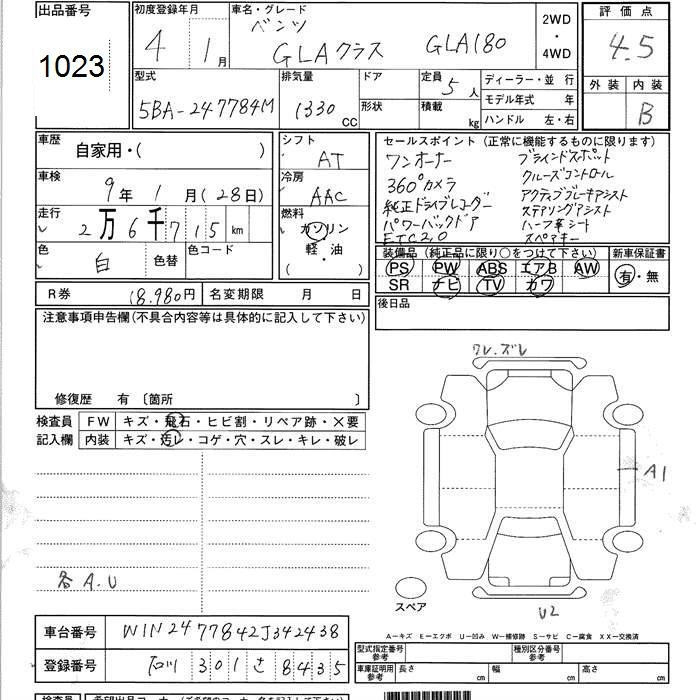 出品番号 初度登録年月 車名・グレード 2WD・4WD 評価点
1023 4年 1月 ベンツ GLAクラス GLA180 4.5
型式 排気量 ドア 定員 5人 ディーラー・並行 外装 内装
5BA-247784M 1330CC 形状 積載 kg モデル年式 年 B
ハンドル 左・右
車歴 自家用・( ) シフト AT セールスポイント (正常に機能するものに限ります)
ワンオーナー ブラインドスポット
車検 9年 1月 (28日) 冷房 AAC 360°カメラ クルーズコントロール
純正ドライブレコーダー アクティブブレーキアシスト
走行 2万6千715km 燃料 ガソリン 軽・油 ( ・ ) パワーバックドア ステアリングアシスト
ハーフ革シート
ETC2.0 スペアキー
色 白 色替 色コード 装備品 (純正品に限り○をつけて下さい) 新車保証書
PS PW ABS エアB AW 有・無
R券 18,980円 名変期限 月 日 SR ナビ TV カワ
注意事項申告欄(不具合内容等は具体的に記入して下さい) 後日品
修復歴 有 〔箇所 〕
ワレ.ズレ
検査員 FW キズ・飛石・ヒビ割・リペア跡・×要
記入欄 内装 キズ・汚レ・コゲ・穴・スレ・キレ・破レ
A1
各A.U
スペア U2
A-キズ E-エクボ U-凹み W-補修跡 S-サビ C-腐食 XX-交換済
車台番号 W1N2477842J342438
型式指定番号 参考 種別区分番号 参考
登録番号 石川 301 さ 8435
車庫証明用 参考 長さ 幅 高さ